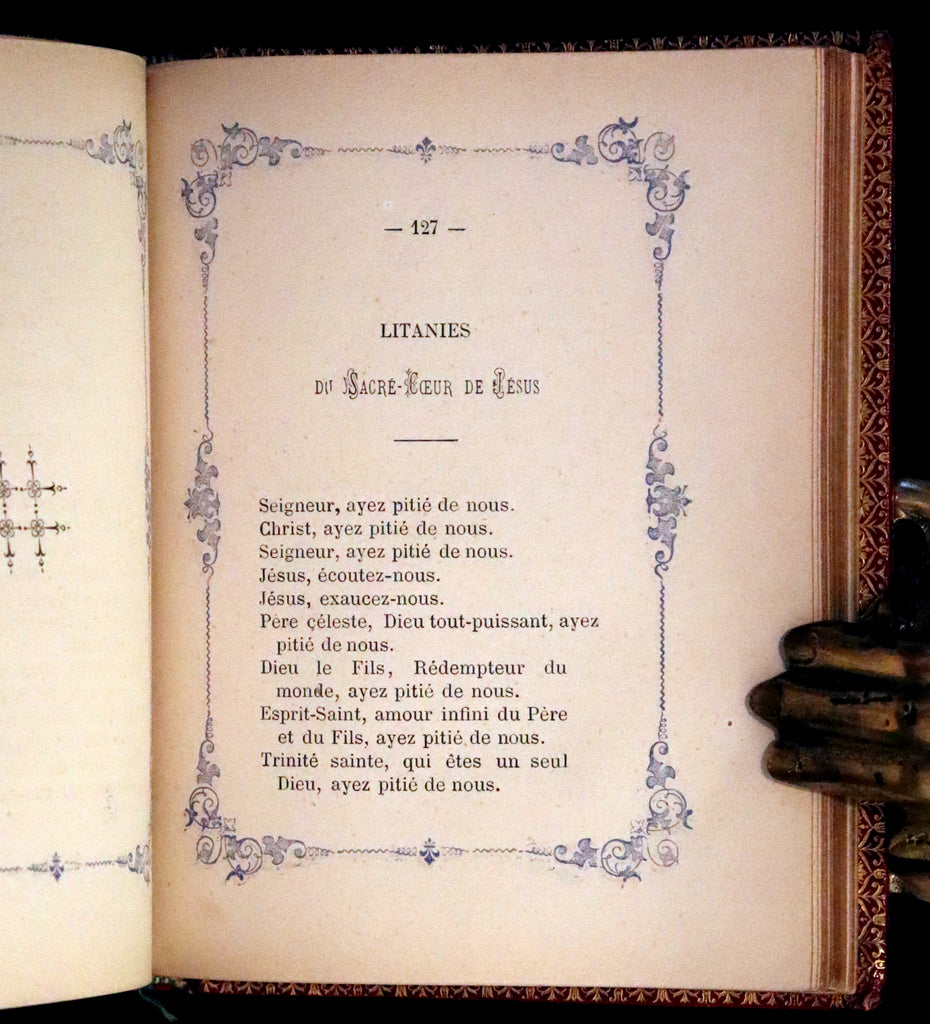 — 127 —
LITANIES
DU SACRÉ-CŒUR DE JÉSUS
Seigneur, ayez pitié de nous.
Christ, ayez pitié de nous.
Seigneur, ayez pitié de nous.
Jésus, écoutez-nous.
Jésus, exaucez-nous.
Père çéleste, Dieu tout-puissant, ayez
pitié de nous.
Dieu le Fils, Rédempteur du
monde, ayez pitié de nous.
Esprit-Saint, amour infini du Père
et du Fils, ayez pitié de nous.
Trinité sainte, qui êtes un seul
Dieu, ayez pitié de nous.